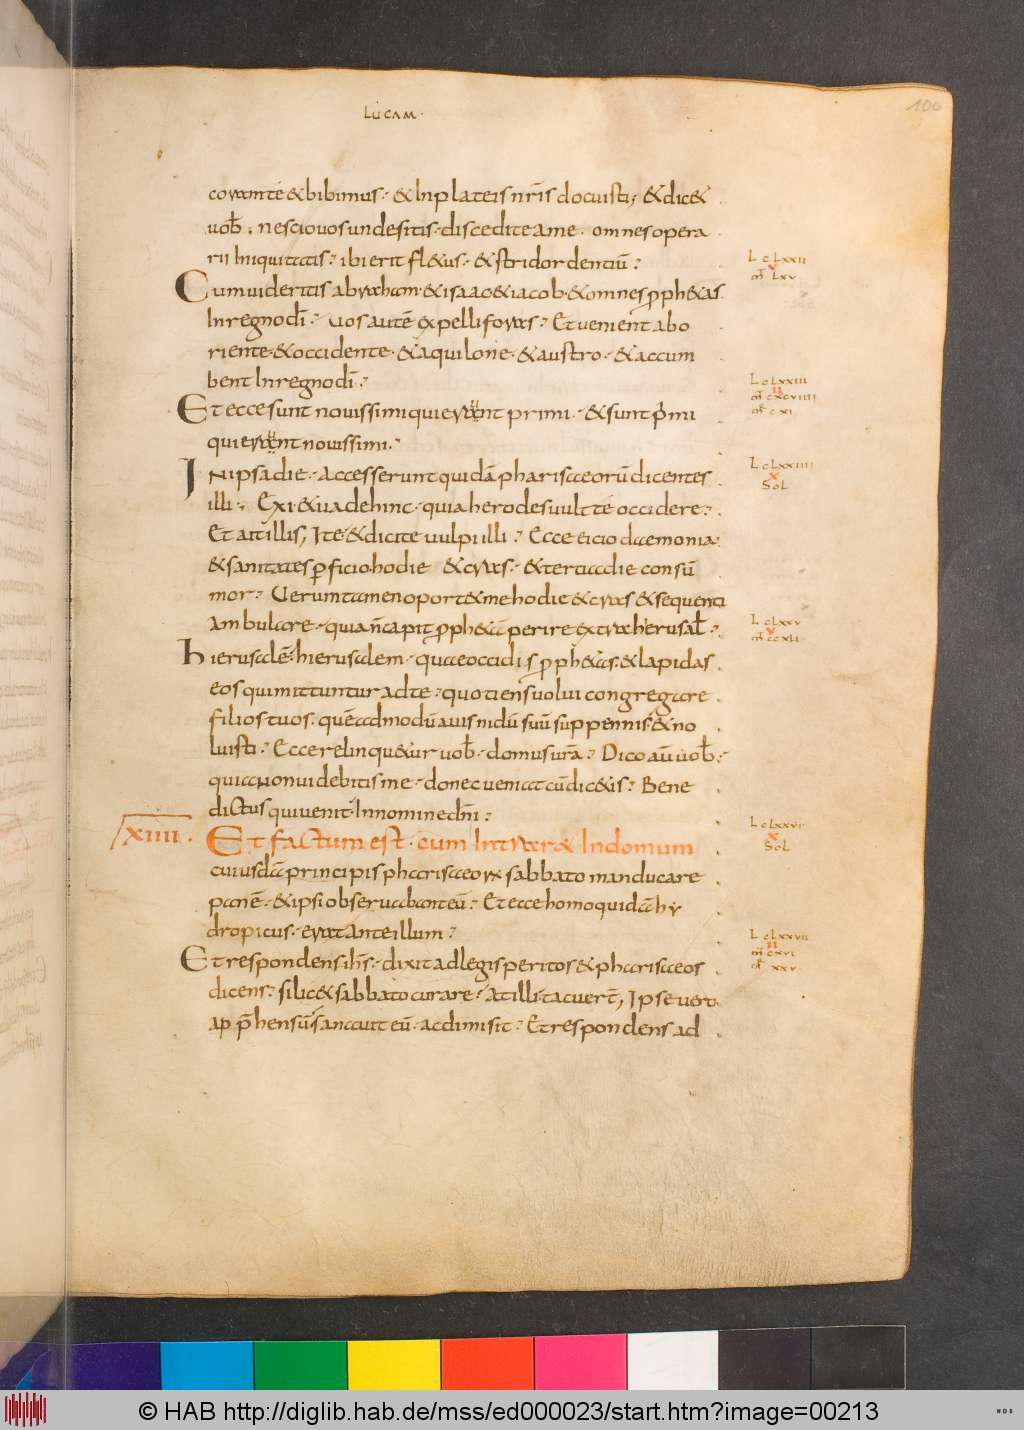 LUCAM·
106
co ram te & bibimus· & In plateis nr̄is docuisti; & dic&
uob̄· nescio uos unde sitis· discedite a me· omnes opera
rii Iniquitatis· ibi erit fl&us· & stridor dentiū·
Cum uideritis abraham· & isaac & iacob· & omnes ꝓph&as
In regno dī· Uos autē expelli foras· Et uenient ab o
riente· & occidente· & aquilone· & austro· & accum
bent In regno dī·
Et ecce sunt nouissimi qui erant primi· & sunt p̄mi
qui erant nouissimi·
IN ipsa die· accesserunt quidā pharisaeorū dicentes
illi· Exi· & uade hinc· quia herodes uult te occidere·
Et ait illis; Ite· & dicite uulpi illi· Ecce eicio daemonia
& sanitates ꝑficio hodie & cras· & tertia die consū
mor· Uerumtamen oport& me hodie & cras & sequenti
ambulare· quia n̄ capit ꝓph&ā perire extra hierusal̄·
Hierusalē· hierusalem· quae occidis ꝓph&as· & lapidas
eos qui mittuntur ad te· quotiens uolui congregare
filios tuos· quēadmodū auis nidū suū sup pennis· & no
luisti· Ecce relinqu&ur uob̄· domus ur̄a· Dico aū uob̄·
quia non uidebitis me· donec ueniat cū dic&is· Bene
dictus qui uenit· In nomine dn̄i·
XIIII· Et factum est· cum Intrar& In domum
cuiusdā principis pharisaeorx sabbato manducare
panē· & ipsi obseruabant eū· Et ecce homo quidā hy
dropicus· erat ante illum·
Et respondens ih̄s· dixit ad legis peritos & pharisaeos
dicens· si lic& sabbato curare· At illi tacuer̄t; Ipse uero
app̄hensū sanauit eū· ac dimisit· Et respondens ad
L cLxxii
v
m̄ Lxv
L cLxxiii
ii
m̄ cxcviiii
m̄r cxi
L cLxxiiii
x
SoL
L cLxxv
v
m̄ ccxLi
L cLxxvi
x
SoL
L cLxxvii
ii
m̄ cxvi
m̄r xxv
© HAB http://diglib.hab.de/mss/ed000023/start.htm?image=00213
WDB